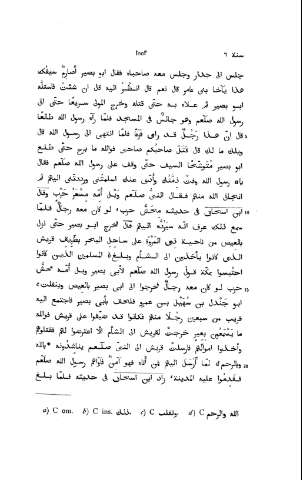 سنة ٦ ١٥٥٣
جلس الى جدار وجلس معه صاحباه فقال ابو بصير أصارم سيفك
هذا يأخا بنى عامر قال نعم قال انظر اليه قال ان شئت فاستله
ابو بصير ثم علاه به حتى قتله وخرج المولى سريعا حتى اتى
رسول الله صلعم وهو جالس فى المسجد فلما رآه رسول الله طالعا
قال ان هذا رجل قد رأى فزعا فلما انتهى الى رسول الله قال
ويلك ما لك قال قتل صاحبكم صاحبى فوالله ما برح حتى طلع
ابو بصير متوشحا السيف حتى وقف على رسول الله صلعم فقال
يا رسول الله وفت ذمتك وأدى عنك أسلمتنى ورددتنى اليهم ثم
انجانى الله منهم فقال النبى صلعم ويل أمه مسعر حرب وقال
ابن اسحاق فى حديثه محش حرب لو كان معه رجال فلما
سمع ذلك عرف انه سيرده اليهم قال فخرج ابو بصير حتى نزل
بالعيص من ناحية ذى المروة على ساحل البحر بطريق قريش
الذى كانوا يأخذون الى الشأم وبلغ المسلمين الذين كانوا
احتبسوا بمكة قول رسول الله صلعم لابى بصير ويل أمه محش
حرب لو كان معه رجال فخرجوا الى ابى بصير بالعيص وينفلت
ابو جندل بن سهيل بن عمرو فلحق بأبى بصير فاجتمع اليه
قريب من سبعين رجلا منهم فكانوا قد ضيقوا على قريش فوالله
ما يسمعون بعير خرجت لقريش الى الشأم الا اعترضوا لهم فقتلوهم
وأخذوا اموالهم فأرسلت قريش الى النبى صلعم يناشدونه بالله
وبالرحم لما أرسل اليهم فمن أتاه فهو آمن فآواهم رسول الله صلعم
فقدموا عليه المدينة، زاد ابن اسحاق فى حديثه فلما بلغ
a) C om. b) C ins. ذلك. c) C وتفلت. d) C الله والرحم